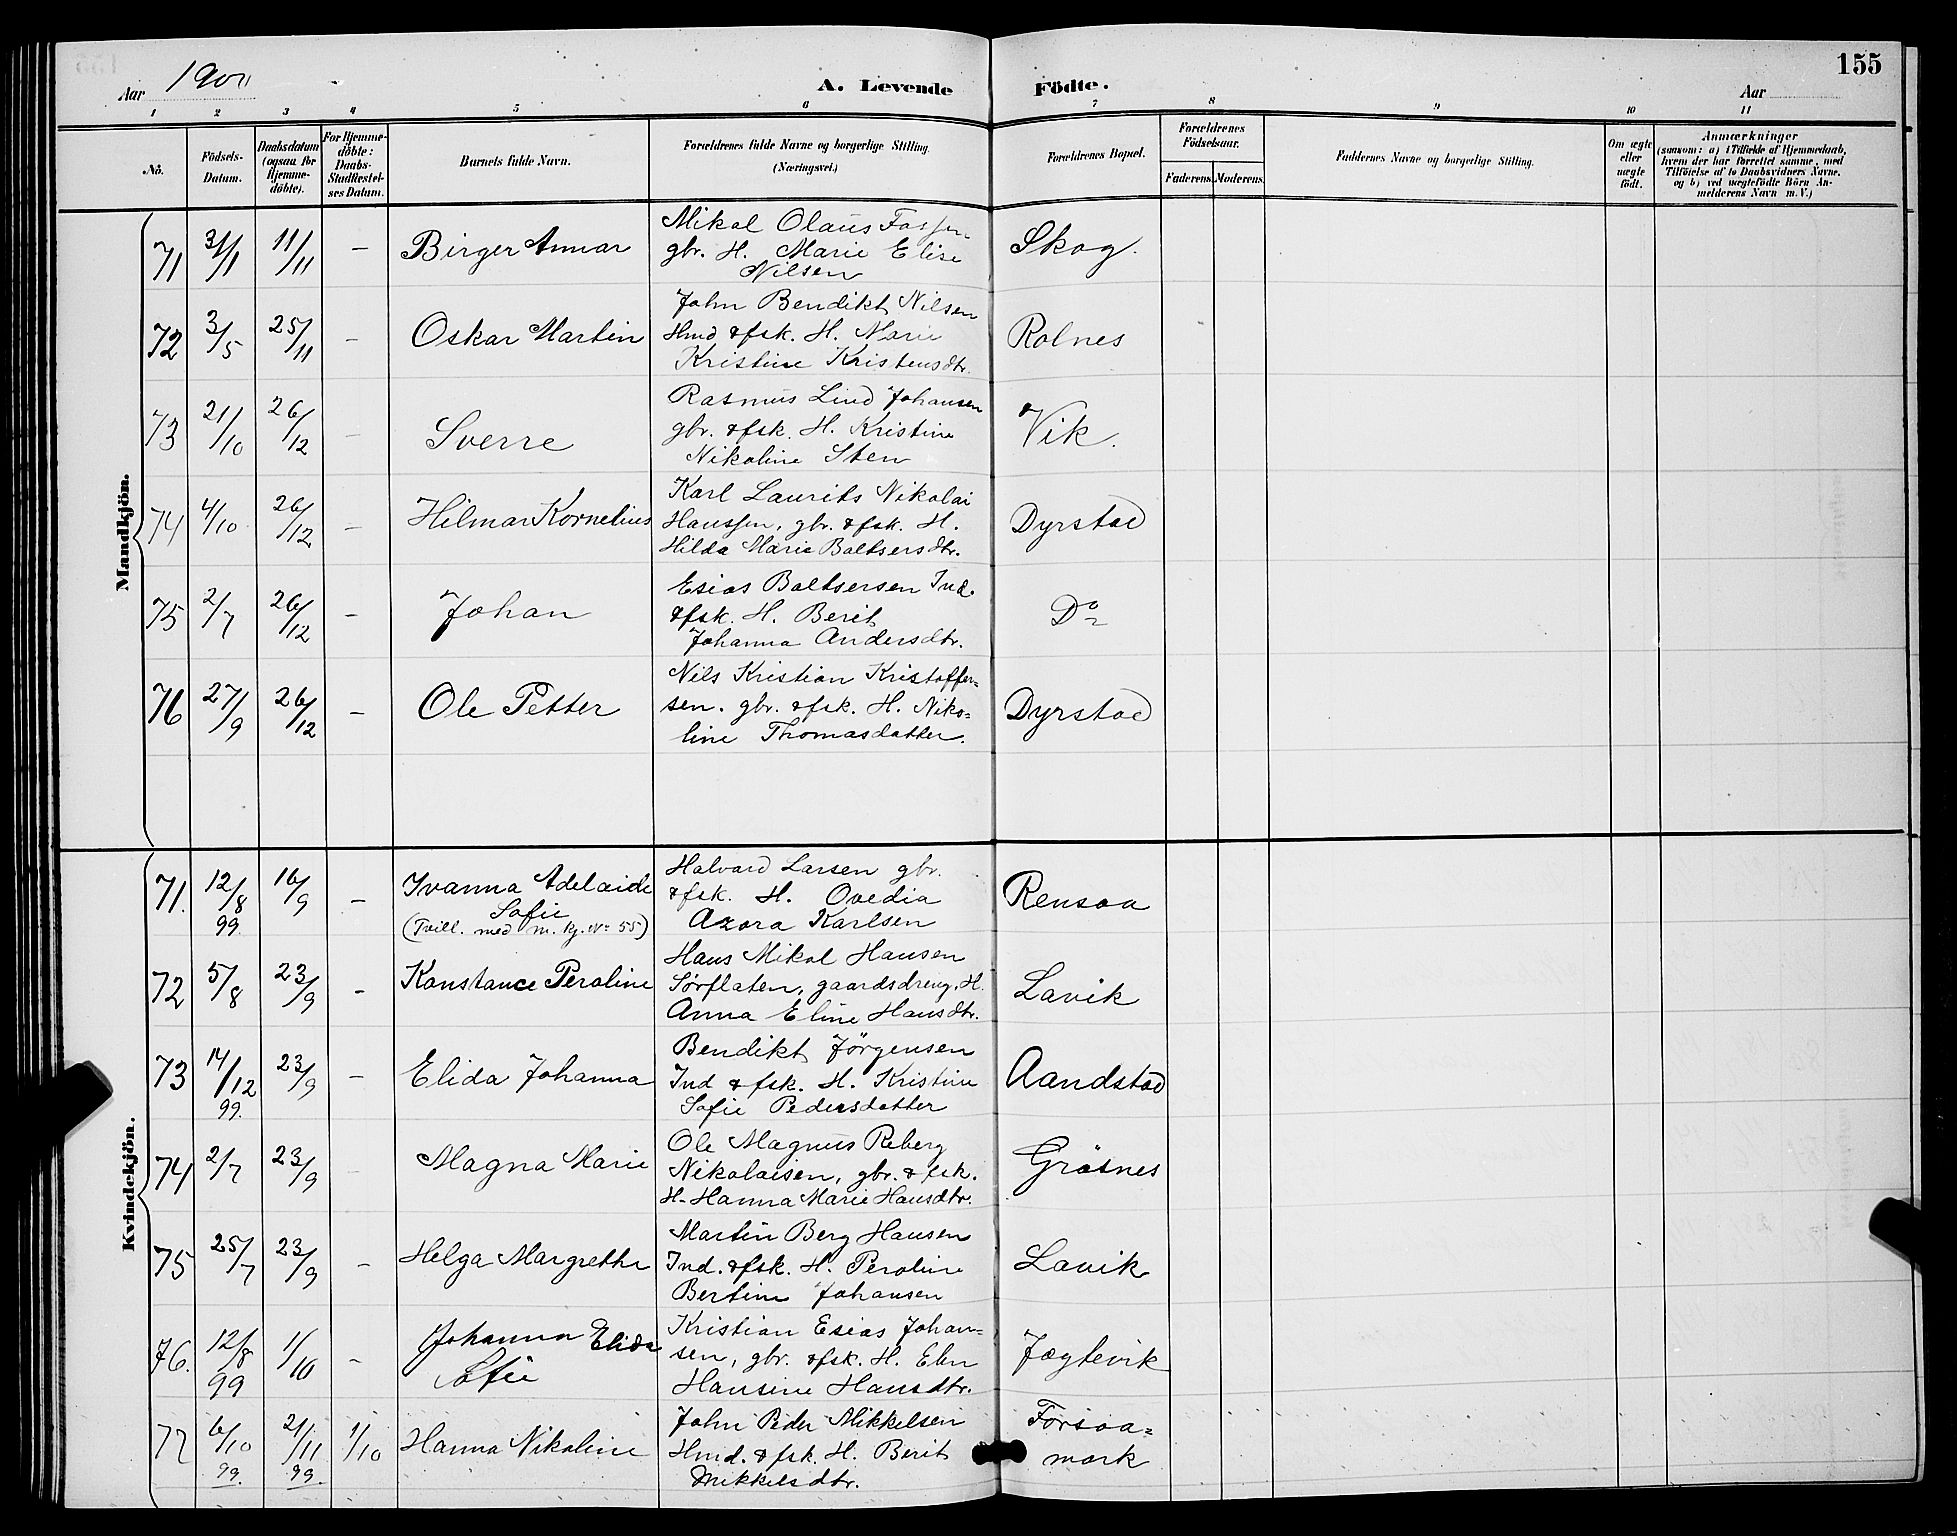 155
Aar 1900
A. Levende Födte.
Aar
1 2 3 4 5 6 7 8 9 10 11
No.
Födsels-
Datum.
Daabsdatum
(ogsaa for
Hjemme-
döbte).
For Hjemme-
döbte:
Daabs-
Stadfæstel-
ses Datum.
Barnets fulde Navn.
Forældrenes fulde Navne og borgerlige Stilling
(Næringsvei.)
Forældrenes Bopæl.
Forældrenes
Födselsaar.
Faderens. Moderens.
Faddernes Navne og borgerlige Stilling.
Om ægte
eller
uægte
födt.
Anmærkninger
(saasom: a) i Tilfælde af Hjemmedaab,
hvem der har forrettet samme, med
Tilföielse af to Daabsvidners Navne.
og b) ved uægtefödte Börn An-
melderens Navn m. V.)
Mandkjön.
71 11/11 – Birger Annar
Mikal Olaus
gbr. H. Marie Elise
Nilsen
Skog.
72 3/5 25/11 – Oskar Martin
John Bendikt Nilsen
Hmd & fsk. H. Marie
Kristine Kristensdtr.
Rolnes
73 21/10 26/12 – Sverre
Rasmus Lind Johansen
gbr. & fsk. H. Kristine
Nikoline Sten
Vik.
74 4/10 26/12 – Hilmar Kornelius
Karl Laurits Nikolai
Hanssen, gbr. & fsk. H.
Hilda Marie Baltsersdtr.
Dyrstad
75 2/7 26/12 – Johan
Esias Baltsersen Ind.
& fsk. H. Berit
Johanna Andersdtr.
Do
76 27/9 26/12 – Ole Petter
Nils Kristian Kristoffer=
sen. gbr. & fsk. H. Niko=
line Thomasdatter.
Dyrstad
Kvindekjön.
71. 12/8 99. 16/9 – Ivanna Adelaide
Sofie
(Tvill. med m. kj. No 55)
Halvard Larsen gbr.
& fsk. H. Ovedia
Azora Karlsen
Rensaa
72 5/8 23/9 – Konstance Peroline
Hans Mikal Hansen
Sørflaten, gaardsdreng, H.
Anna Eline Hansdtr.
Lavik
73 14/12 99. 23/9 – Elida Johanna
Bendikt Jörgensen
Ind & fsk. H. Kristine
Sofie Pedersdatter
Aandstad
74 2/7 23/9 – Magna Marie
Ole Magnus Reberg
Nikolaisen, gbr. & fsk.
H. Hanna Marie Hansdtr.
Gräsnes
75 25/7 23/9 – Helga Margrethe
Martin Berg Hansen
Ind. & fsk. H. Peroline
Bertine Johansen
Lavik
76. 12/8 99 1/10 – Johanna Elida
Sofie
Kristian Esias Johan=
sen, gbr. & fsk. H. Elen
Hansine Hansdtr.
Jægtevik
77 6/10 99. 21/11 99. 1/10 Hanna Nikoline
John Peder Mikkelsen
Hmd. & fsk. H. Berit
Mikkelsdtr.
Forsaa=
mark